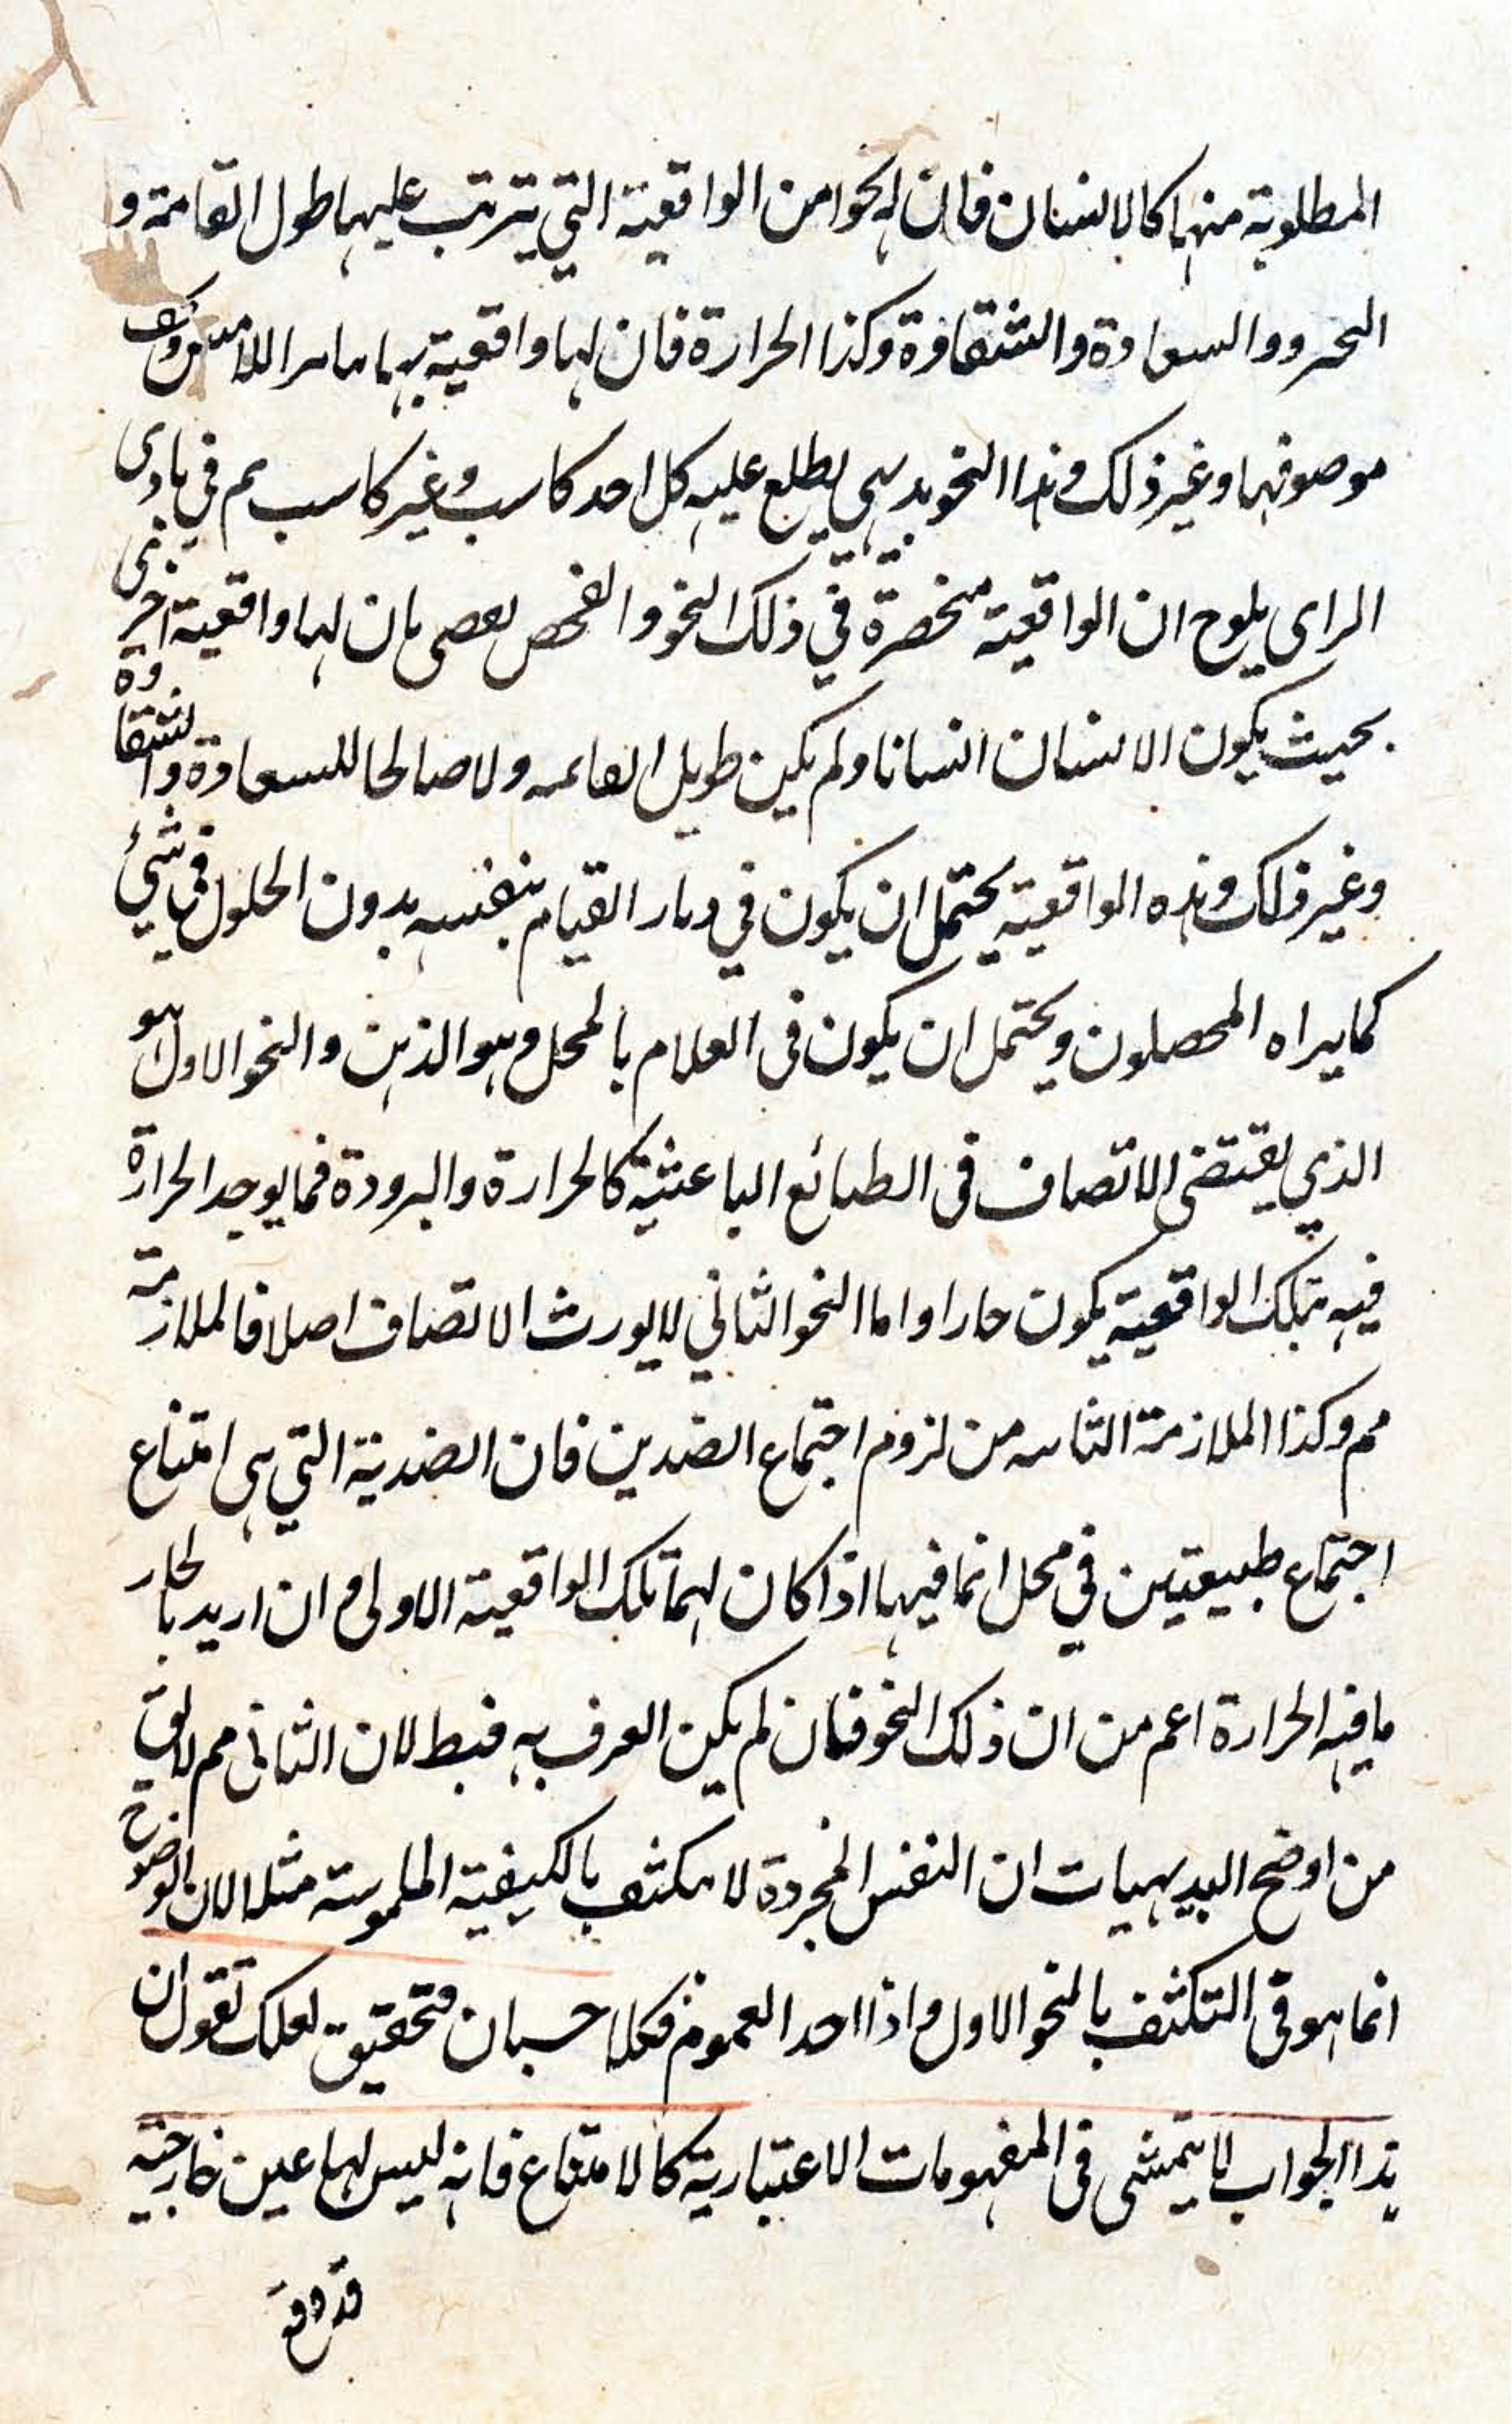 المطلوبة منها كالانسان فان له نحوا من الواقعية التي يترتب عليها طول القامة و
التحرر والسعادة والشقاوة وكذا الحرارة فان لها واقعية بها
موصوفها وغير ذلك وهذا النحو بديهي يطلع عليه كل احد كاسب وغير كاسب ثم في بادى
الراى يلوح ان الواقعية منحصرة في ذلك النحو والفحص بان لها واقعية اخرى
بحيث يكون الانسان انسانا ولم يكن طويل القامه ولا صالحا للسعادة والشقاوة
وغير ذلك وهذه الواقعية يحتمل ان يكون في دار القيام بنفسه بدون الحلول في شيئ
كما يراه المحصلون ويحتمل ان يكون فى القيام بالمحل وهو الذهن والنحو الاول هو
الذي يقتضى الاتصاف فى الطبائع الباعثية كالحرارة والبرودة فما يوجد الحرارة
فيه بتلك الواقعية يكون حارا واما النحو الثاني لا يورث الاتصاف اصلا فالملازمة
مم وكذا الملازمة الثانيه من لزوم اجتماع الضدين فان الضدية التي هى امتناع
اجتماع طبيعتين في محل انما فيها اذا كان لهما تلك الواقعية الاولى وان اريد بالحار
ما فيه الحرارة اعم من ان ذلك النحو فان لم يكن العرف به فبطلان الثانى مم لا يق
من اوضح البديهيات ان النفس المجردة لا تكتنف بالكيفية الملموسة مثلا لان الوضوح
انما هو فى التكثف بالنحو الاول واذا اخذ العموم فكلا حسبان وتحقيق لعلك تقول ان
هذا الجواب لا يتمشى فى المفهومات الاعتبارية كالامتناع فانه ليس لها عين خارجية